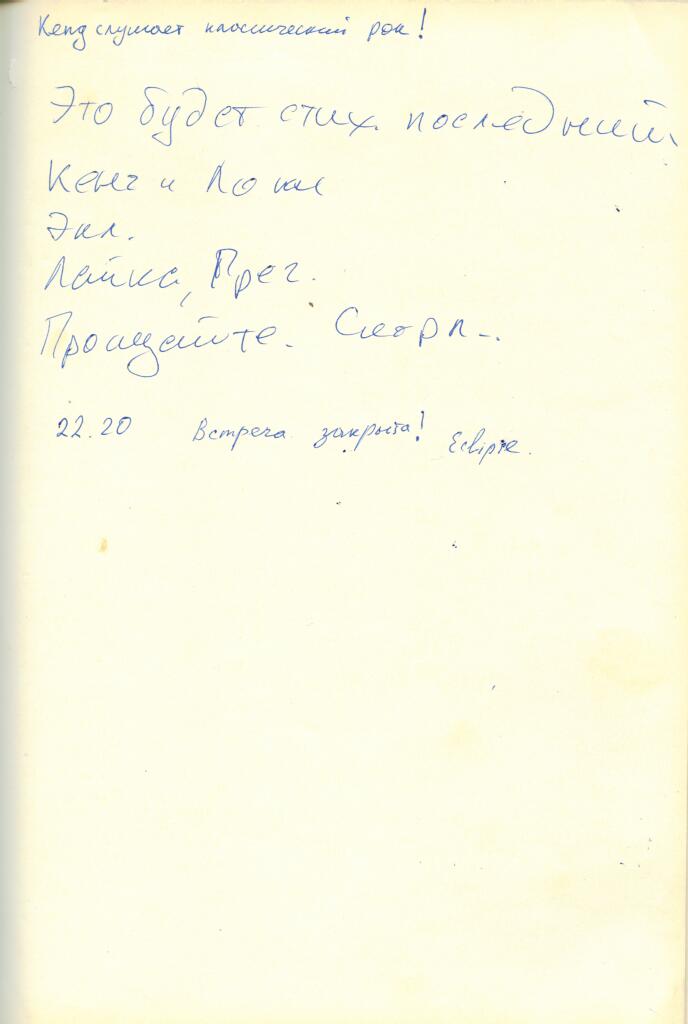 Keng слушает классический рок!
Это будет стих последний.
Кенг и Локи
Экл.
Лайка, Грег.
Прощайте. Скорп...
22.20 Встреча закрыта! Eclipse.